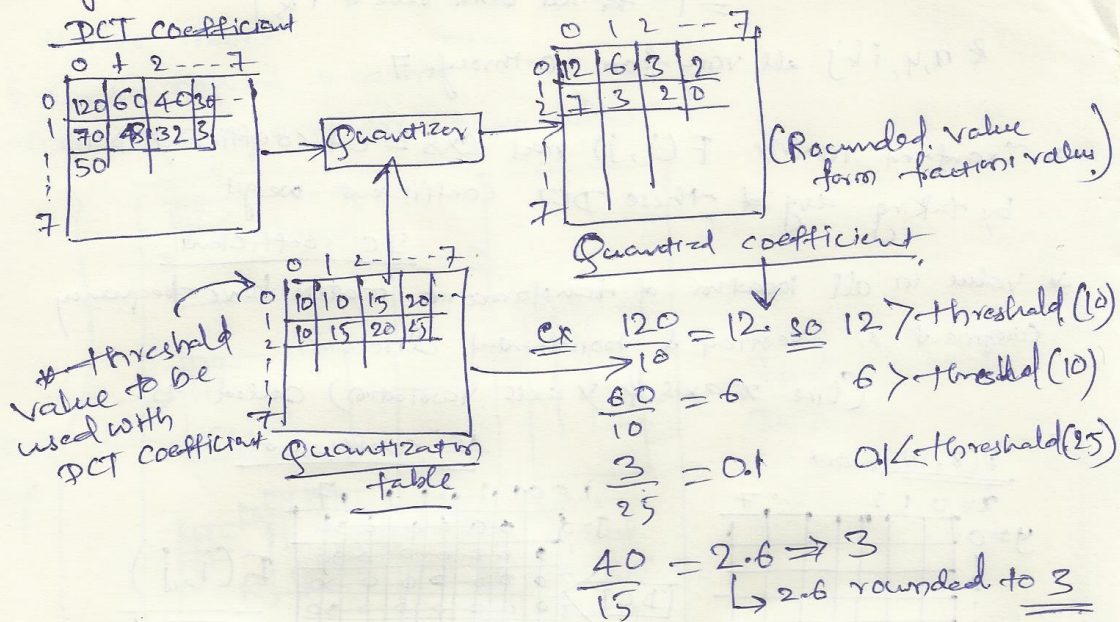 DCT coefficient
0 1 2 ---- 7
0 120 60 40 30 --
1 70 48 32 3
50
7
Quantizer
0 1 2 --- 7
0 12 6 3 2
1 7 3 2 0
2
7
(Rounded value
form fraction value)
Quantized coefficient
0 1 2 ---- 7
0 10 10 15 20 --
1 10 15 20 25
2
7
* threshald
value to be
used with
DCT coefficient
Quantization
table
ex 120/10 = 12. so 12 > threshald (10)
60/10 = 6 6 > threshald (10)
3/25 = 0.1 0.1 < threshald (25)
40/15 = 2.6 ⇒ 3
↳ 2.6 rounded to 3